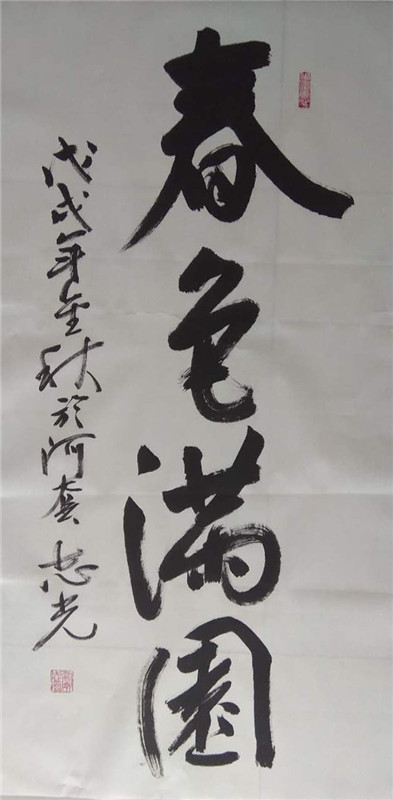 春色滿園
戊戌年金秋於河套志光